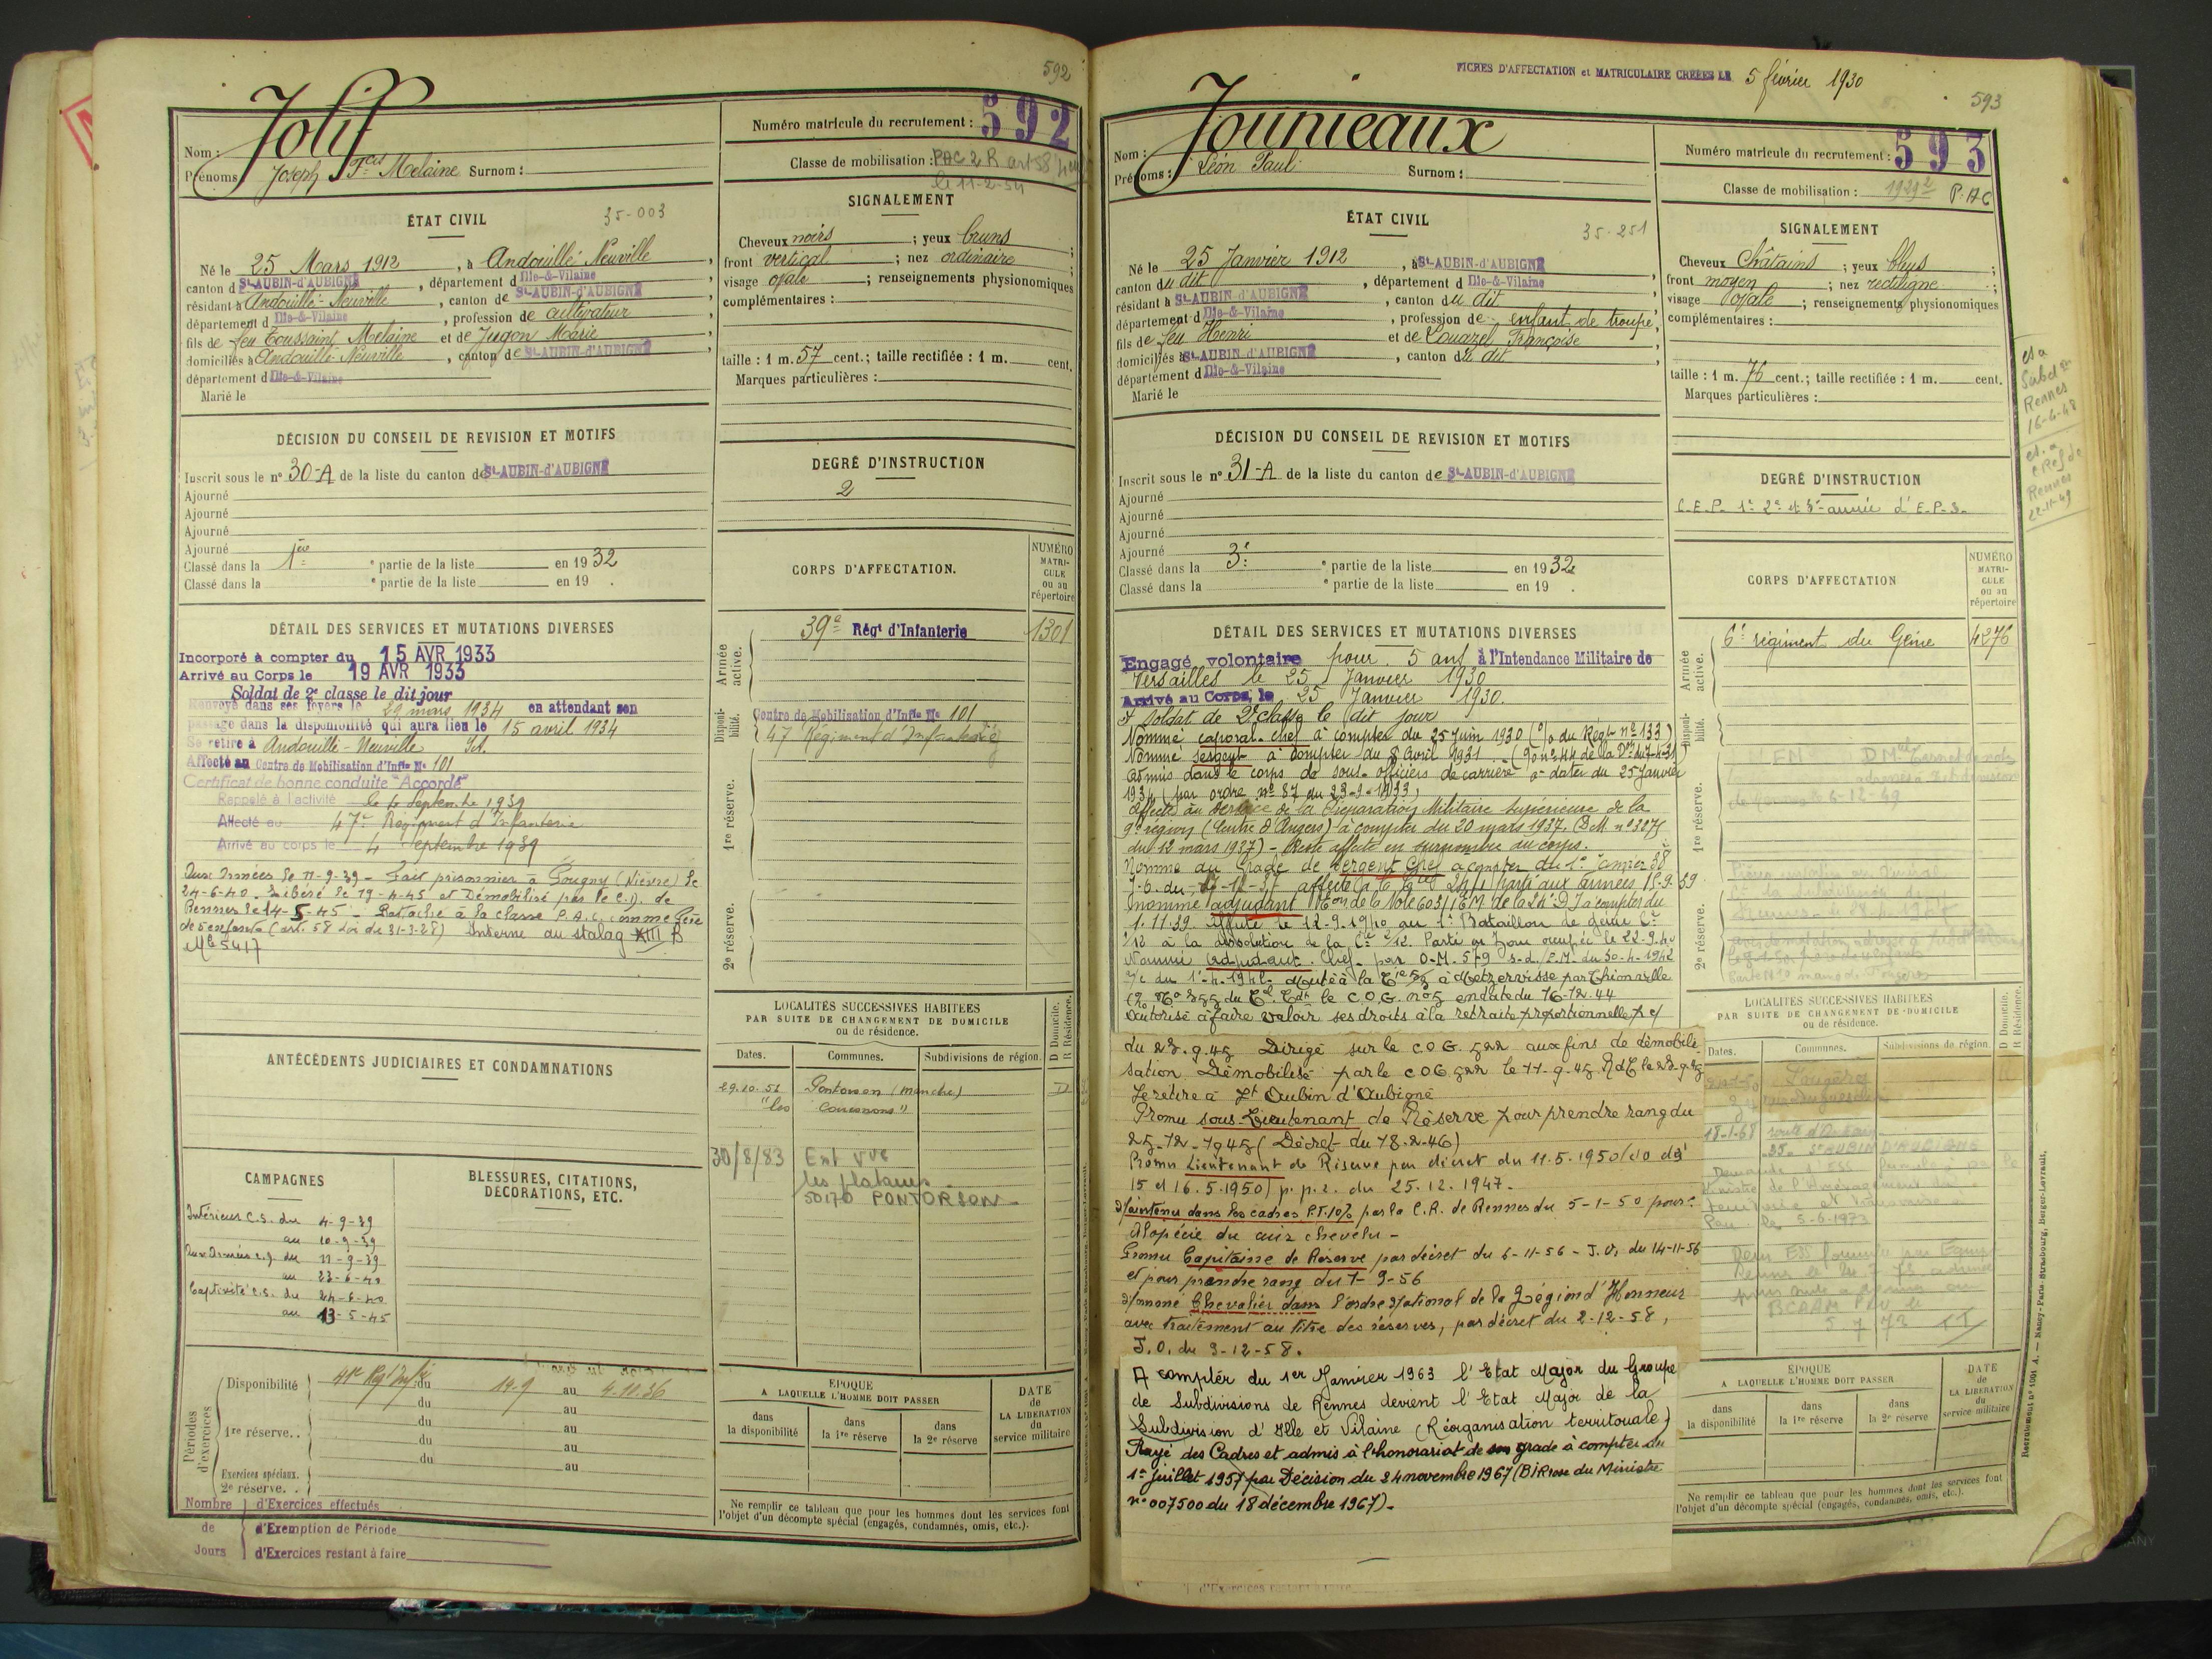 592
Jolif
Nom :
Prénoms Joseph Fcis Melaine Surnom :
Numéro matricule du recrutement : 592
Classe de mobilisation : PAC 2 R art 58
le 11-2-54
ÉTAT CIVIL
35-003
Né le 25 Mars 1912, à Andouillé-Neuville,
canton de St-AUBIN-d'AUBIGNÉ, département d Ille-&-Vilaine
résidant à Andouillé-Neuville, canton de St-AUBIN-d'AUBIGNÉ
département d Ille-&-Vilaine, profession de cultivateur
fils de feu Toussaint Melaine et de Jugon Marie
domiciliés à Andouillé Neuville, canton de St-AUBIN-d'AUBIGNÉ
département d Ille-&-Vilaine
Marié le
SIGNALEMENT
Cheveux noirs ; yeux bruns ;
front vertical ; nez ordinaire ;
visage ovale ; renseignements physionomiques
complémentaires :
taille : 1 m. 57 cent. ; taille rectifiée : 1 m. cent.
Marques particulières :
DÉCISION DU CONSEIL DE REVISION ET MOTIFS
Inscrit sous le n° 30-A de la liste du canton de St-AUBIN-d'AUBIGNÉ
Ajourné
Ajourné
Ajourné
Ajourné
Classé dans la 1ère ° partie de la liste en 1932
Classé dans la ° partie de la liste en 19 .
DEGRÉ D'INSTRUCTION
2
CORPS D'AFFECTATION.
NUMÉRO MATRICULE ou au répertoire
Armée active.
39e Régt d'Infanterie 1301
Disponibilité.
Centre de Mobilisation d'Infie No 101
47 Régiment d'Infanterie
1re réserve.
2e réserve.
DÉTAIL DES SERVICES ET MUTATIONS DIVERSES
Incorporé à compter du 15 AVR 1933
Arrivé au Corps le 19 AVR 1933
Soldat de 2e classe le dit jour
Renvoyé dans ses foyers le 29 mars 1934 en attendant son
passage dans la disponibilité qui aura lieu le 15 avril 1934
Se retire à Andouillé-Neuville
Affecté au Centre de Mobilisation d'Infie No 101
Certificat de bonne conduite "Accordé"
Rappelé à l'activité le 4 Septembre 1939
Affecté au 47e Régiment d'Infanterie
Arrivé au corps le 4 Septembre 1939
Aux Armées le 11-9-39 - Fait prisonnier à Pougny (Nièvre) le
24-6-40. Libéré le 19-4-45 et Démobilisé par le C.D. de
Rennes le 14-5-45 - Rattaché à la classe P.A.C. comme Père
de 5 enfants (art. 58 Loi du 31-3-28) Interné au stalag XIII B
Mle 5417
ANTÉCÉDENTS JUDICIAIRES ET CONDAMNATIONS
LOCALITÉS SUCCESSIVES HABITÉES
PAR SUITE DE CHANGEMENT DE DOMICILE
ou de résidence.
Dates. Communes. Subdivisions de région. D Domicile. R Résidence.
29.10.51 Pontorson (Manche) D
"les Couesnons"
30/8/83
les Platanes
50170 PONTORSON
CAMPAGNES
Intérieur C.S. du 4-9-39
au 10-9-39
Aux Armées C.D. du 11-9-39
au 23-6-40
Captivité C.S. du 24-6-40
au 13-5-45
BLESSURES, CITATIONS,
DÉCORATIONS, ETC.
Périodes d'exercices
Disponibilité 41e Rég d'Infie du 19.9 au 4.11.36
du au
1re réserve.. du au
du au
du au
Exercices spéciaux.
2e réserve. .
Nombre de Jours
d'Exercices effectués
d'Exemption de Période
d'Exercices restant à faire
ÉPOQUE
A LAQUELLE L'HOMME DOIT PASSER
dans la disponibilité
dans la 1re réserve
dans la 2e réserve
DATE de LA LIBÉRATION du service militaire
Ne remplir ce tableau que pour les hommes dont les services font
l'objet d'un décompte spécial (engagés, condamnés, omis, etc.).
FICHES D'AFFECTATION et MATRICULAIRE CRÉÉES LE 5 février 1930
593
Jouneaux
Nom :
Prénoms : Léon Paul Surnom :
Numéro matricule du recrutement : 593
Classe de mobilisation : 1929² P.AC
ÉTAT CIVIL
35-251
Né le 25 Janvier 1912, à St-AUBIN-d'AUBIGNÉ
canton du dit, département d Ille-&-Vilaine
résidant à St-AUBIN-d'AUBIGNÉ, canton du dit
département d Ille-&-Vilaine, profession de enfant de troupe,
fils de feu Henri et de Louazel Françoise
domiciliés à St-AUBIN-d'AUBIGNÉ, canton du dit
département d Ille-&-Vilaine
Marié le
SIGNALEMENT
Cheveux Châtains ; yeux bleus ;
front moyen ; nez rectiligne ;
visage ovale ; renseignements physionomiques
complémentaires :
taille : 1 m. 76 cent. ; taille rectifiée : 1 m. cent.
Marques particulières :
Subd on
Rennes
16-4-48
Rennes
22-11-49
DÉCISION DU CONSEIL DE REVISION ET MOTIFS
Inscrit sous le n° 31-A de la liste du canton de St-AUBIN-d'AUBIGNÉ
Ajourné
Ajourné
Ajourné
Ajourné
Classé dans la 3e ° partie de la liste en 1932
Classé dans la ° partie de la liste en 19 .
DEGRÉ D'INSTRUCTION
C.E.P. 1e 2e et 3e année d'E.P.S.
CORPS D'AFFECTATION
NUMÉRO MATRICULE ou au répertoire
Armée active.
6e régiment du Génie 4276
Disponibilité.
1re réserve.
2e réserve.
DÉTAIL DES SERVICES ET MUTATIONS DIVERSES
Engagé volontaire pour 5 ans à l'Intendance Militaire de
Versailles le 25 Janvier 1930
Arrivé au Corps, le 25 Janvier 1930.
et soldat de 2e classe le dit jour
Nommé caporal-chef à compter du 25 Juin 1930 (O/o du Régt n° 133)
Nommé sergent à compter du 8 Avril 1931
Admis dans le corps de sous-officiers de carrière à dater du 25 Janvier
1934 (par ordre n° 87 du 23-9-1933)
Affecté au service de la Préparation Militaire Supérieure de la
9e région (Centre d'Angers) à compter du 20 mars 1937. (D.M. n° 3275
du 12 mars 1937) - Reste affecté en surnombre du corps.
Nommé au Grade de Sergent Chef à compter du 1e Janvier 38
Parti aux Armées 15.9.39
nommé adjudant à compter du
1.11.39. Affecté le 12-9-1940 au 1e Bataillon du Génie Cie
1/12 à la dissolution de la Cie 2/12. Parti en Zone occupée le 22-9-40
Nommé adjudant-Chef par O.M. 579 du 30-4-1942
à Metzervisse par Thionville
le C.O.G. n°5 en date du 16-12-44
Autorisé à faire valoir ses droits à la retraite proportionnelle
du 23.9.45 Dirigé sur le C.O.G. 522 aux fins de démobili-
sation Démobilisé par le C.O.G 522 le 11-9-45
Se retire à St Aubin d'Aubigné
Promu sous-Lieutenant de Réserve pour prendre rang du
25-12-1945 (Décret du 18-2-46)
Promu Lieutenant de Réserve par décret du 11.5.1950 (J.O des
15 et 16.5.1950) p.p.r. du 25.12.1947.
Maintenu dans les cadres P.T. 10% par la C.R. de Rennes du 5-1-50 pour :
Alopécie du cuir chevelu -
Promu Capitaine de Réserve par décret du 6-11-56 - J.O. du 14-11-56
et pour prendre rang du 1-9-56
Nommé Chevalier dans l'ordre National de la Légion d'Honneur
avec traitement au titre des réserves, par décret du 2-12-58,
J.O. du 9-12-58.
A compter du 1er Janvier 1963 l'Etat Major du Groupe
de Subdivisions de Rennes devient l'Etat Major de la
Subdivision d'Ille et Vilaine (Réorganisation territoriale)
Rayé des Cadres et admis à l'honorariat de son grade à compter du
1er juillet 1957 par Décision du 24 novembre 1967 (BIR rose du Ministre
n° 007500 du 18 décembre 1967).
LOCALITÉS SUCCESSIVES HABITÉES
PAR SUITE DE CHANGEMENT DE DOMICILE
ou de résidence.
Dates. Communes. Subdivisions de région. D Domicile. R Résidence.
Fougères
18-1-68
35 St AUBIN D'AUBIGNÉ
5-6-1973
ÉPOQUE
A LAQUELLE L'HOMME DOIT PASSER
dans la disponibilité
dans la 1re réserve
dans la 2e réserve
DATE de LA LIBÉRATION du service militaire
Ne remplir ce tableau que pour les hommes dont les services font
l'objet d'un décompte spécial (engagés, condamnés, omis, etc.).
Recrutement n° 1001 A. — Nancy-Paris-Strasbourg, Berger-Levrault.